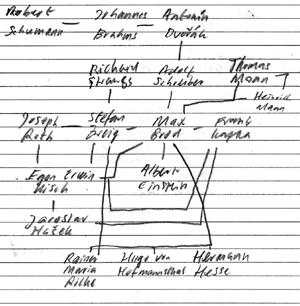 Robert Johannes Antonín
Schumann Brahms Dvořák
Richard Adolf Thomas
Strauss Schreiber Mann
Heinrich
Mann
Joseph Stefan Max Franz
Roth Zweig Brod Kafka
Egon Erwin Albert
Kisch Einstein
Jaroslav
Hašek
Rainer Hugo von Hermann
Maria Hofmannsthal Hesse
Rilke